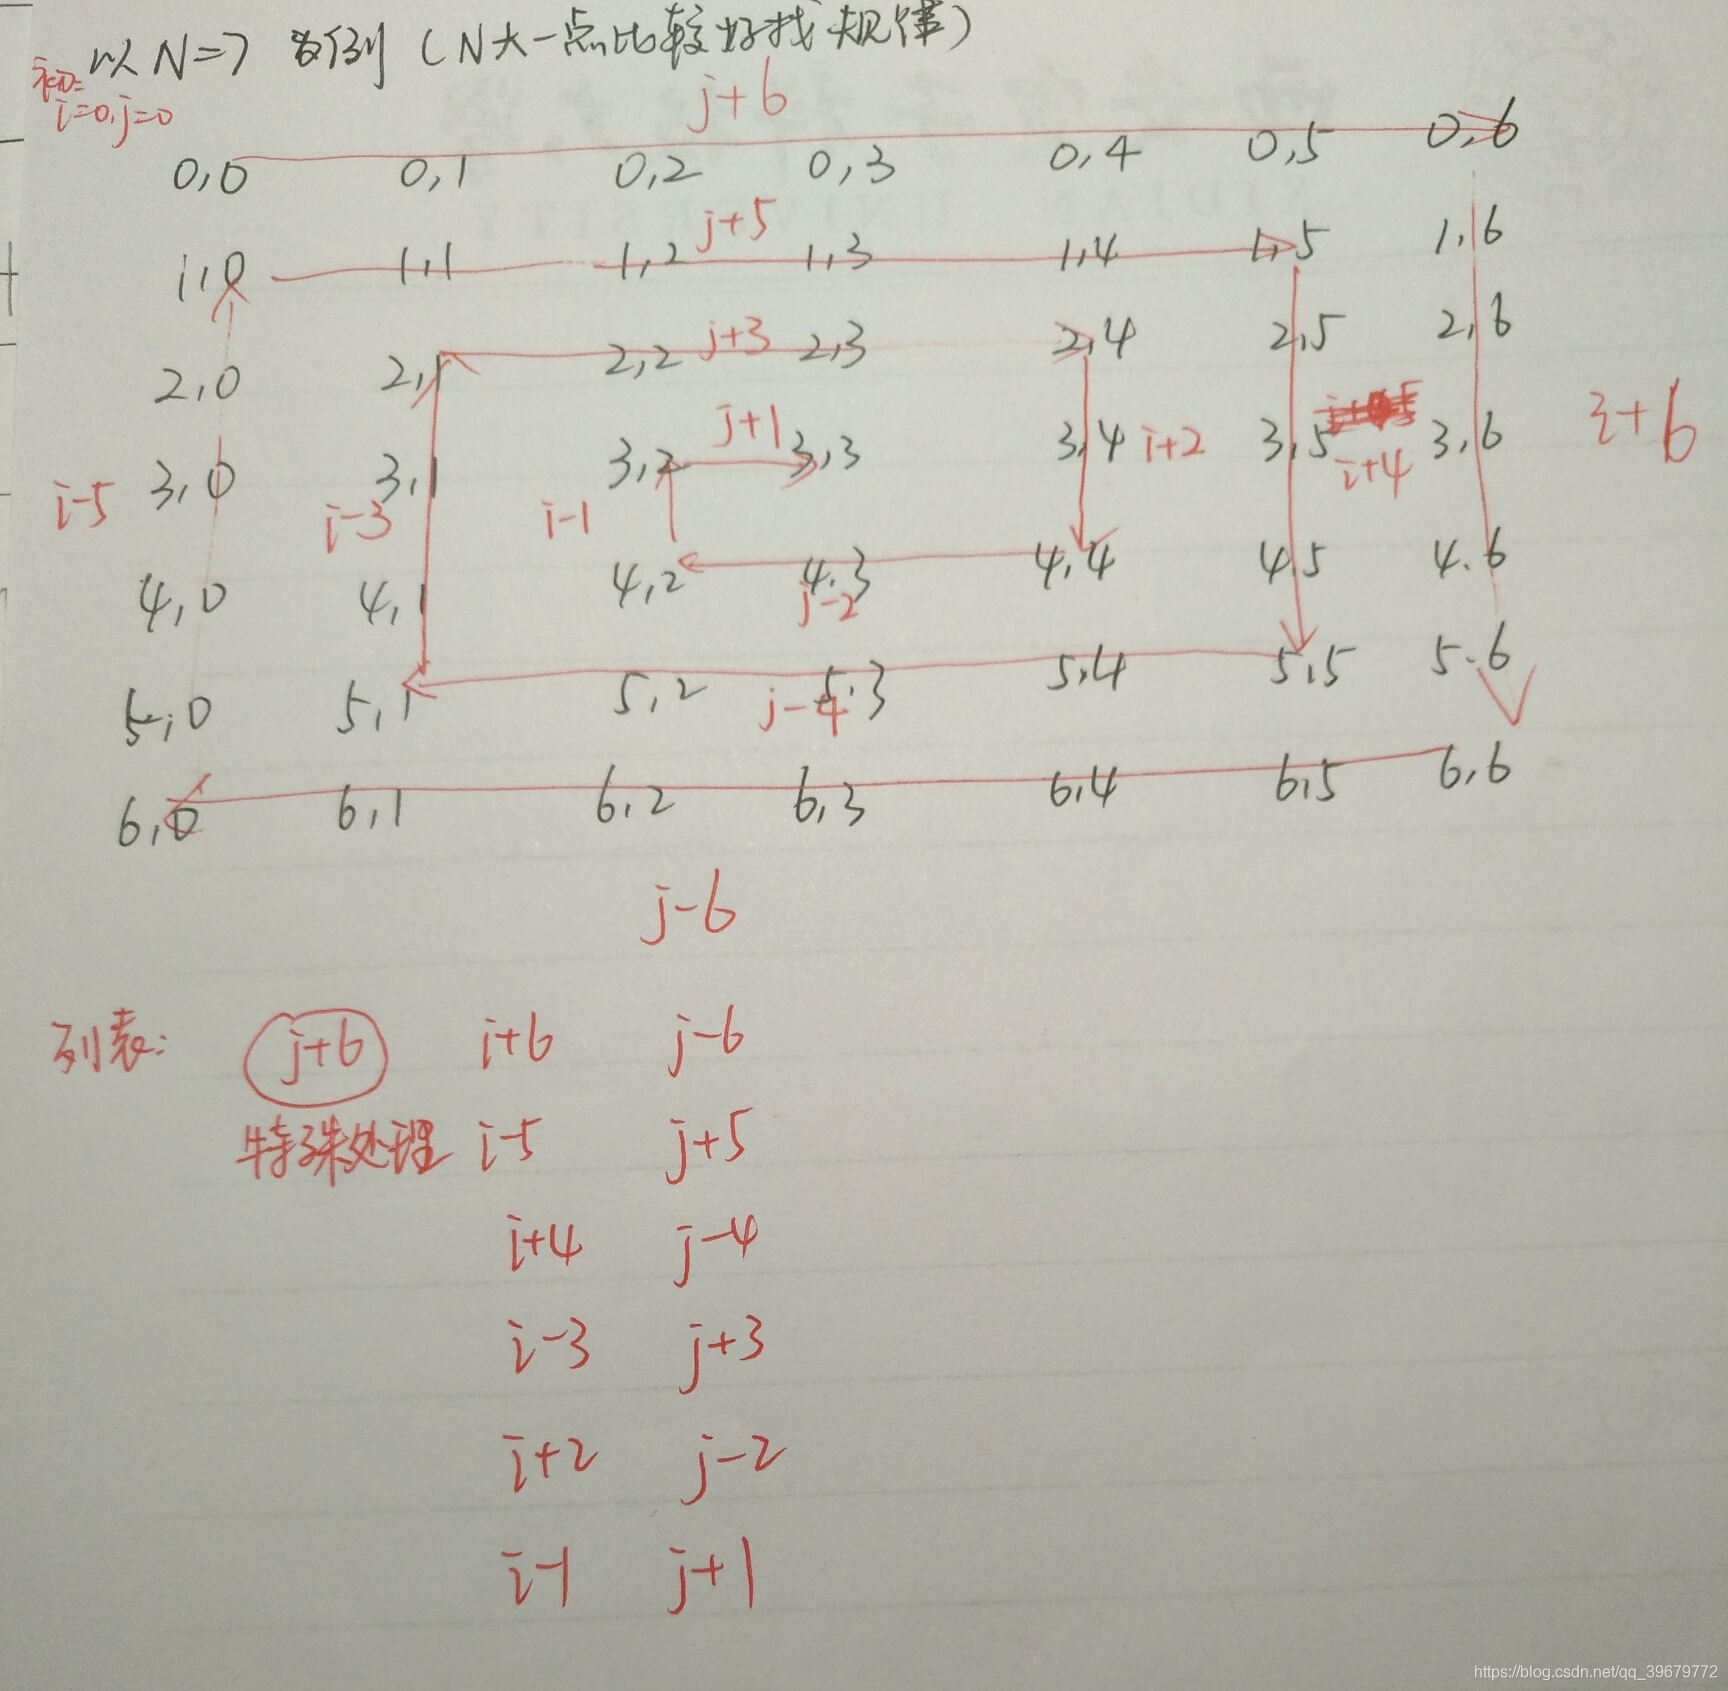 以N=7为例（N大一点比较好找规律）
初始:
i=0,j=0
j+6
0,0 0,1 0,2 0,3 0,4 0,5 0,6
j+5
1,0 1,1 1,2 1,3 1,4 1,5 1,6
j+3
2,0 2,1 2,2 2,3 2,4 2,5 2,6
j+1
3,0 3,1 3,2 3,3 3,4 i+2 3,5 3,6 i+6
i+4
i-5 i-3 i-1
4,0 4,1 4,2 4,3 4,4 4,5 4.6
j-2
5,0 5,1 5,2 5,3 5,4 5,5 5.6
j-4
6,0 6,1 6,2 6,3 6,4 6,5 6,6
j-6
列表: j+6 i+6 j-6
特殊处理 i-5 j+5
i+4 j-4
i-3 j+3
i+2 j-2
i-1 j+1
https://blog.csdn.net/qq_39679772